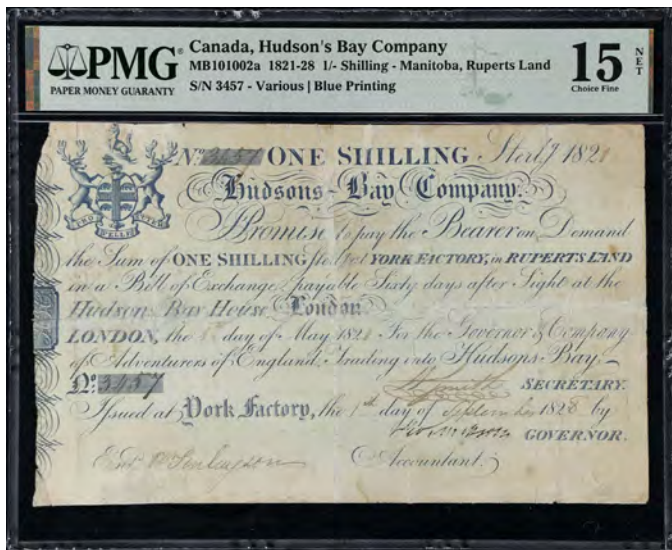 PMG
PAPER MONEY GUARANTY
Canada, Hudson's Bay Company
MB101002a 1821-28 1/- Shilling - Manitoba, Ruperts Land
S/N 3457 - Various | Blue Printing
15 NET
Choice Fine
No. 3457 ONE SHILLING Sterlg 1821
Hudsons-Bay Company.
Promise to pay the Bearer on Demand
the Sum of ONE SHILLING at YORK FACTORY, in RUPERTS LAND
in a Bill of Exchange payable Sixty days after Sight at the
Hudsons Bay House London
LONDON, the day of May 182 For the Governor & Company
of Adventurers of England, Trading into Hudsons-Bay
No. 3457
SECRETARY.
Issued at York Factory, the 1st day of September 1828 by
GOVERNOR.
Entd. Finlayson Accountant.